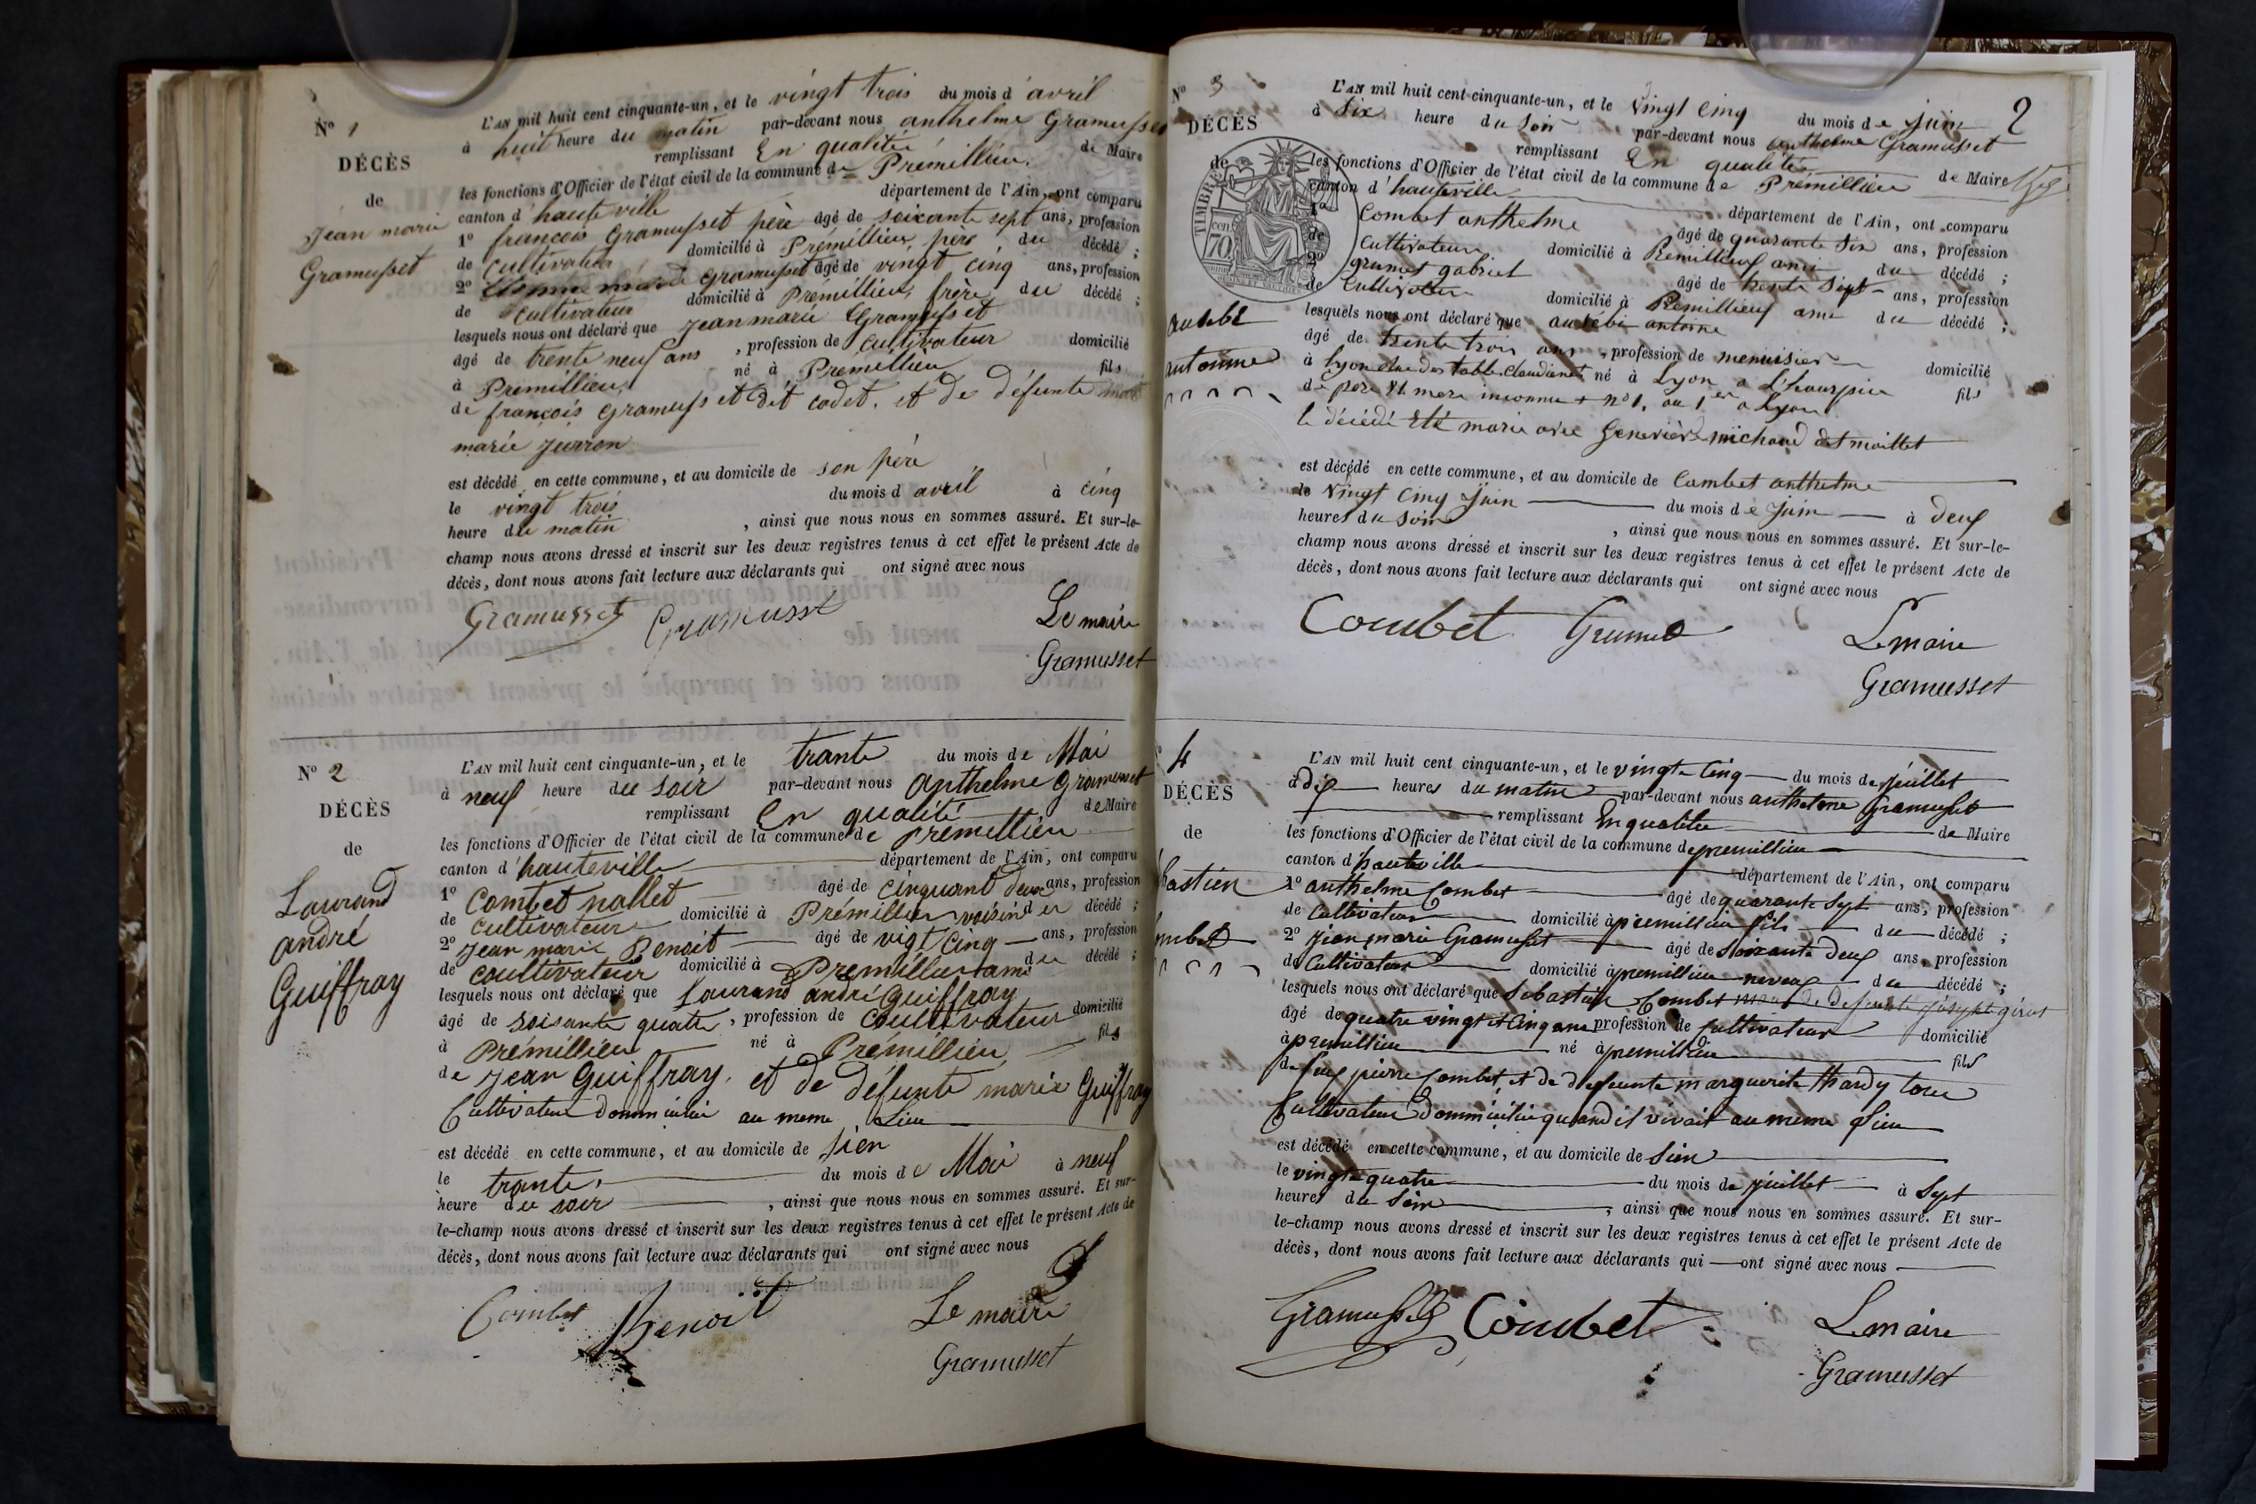 N° 1
DÉCÈS
de
Jean marie
Gramusset
L'AN mil huit cent cinquante-un, et le vingt trois du mois d'avril
à huit heure du matin par-devant nous anthelme Gramusset
remplissant En qualité de Maire
les fonctions d'Officier de l'état civil de la commune de Prémillieu
canton d'hauteville département de l'Ain, ont comparu
1° françois Gramusset père âgé de soixante sept ans, profession
de cultivateur domicilié à Prémillieu père du décédé ;
2° Gramusset âgé de vingt cinq ans, profession
de cultivateur domicilié à Prémillieu frère du décédé ;
lesquels nous ont déclaré que jean marie Gramusset
âgé de trente neuf ans, profession de cultivateur domicilié
à Premillieu né à Premillieu fils
de françois Gramusset dit cadet. et de défunte
marie
est décédé en cette commune, et au domicile de son père
le vingt trois du mois d'avril à cinq
heure du matin, ainsi que nous nous en sommes assuré. Et sur-le-
champ nous avons dressé et inscrit sur les deux registres tenus à cet effet le présent Acte de
décès, dont nous avons fait lecture aux déclarants qui ont signé avec nous
Gramusset Gramusset Le maire
Gramusset
N° 2
DÉCÈS
de
Laurand
andré
Guiffray
L'AN mil huit cent cinquante-un, et le trante du mois de Mai
à neuf heure du soir par-devant nous Anthelme Gramusset
remplissant En qualité de Maire
les fonctions d'Officier de l'état civil de la commune de Prémillieu
canton d'hauteville département de l'Ain, ont comparu
1° Combet nallet âgé de cinquant deux ans, profession
de cultivateur domicilié à Prémillieu voisin du décédé ;
2° Jean marie Benoit âgé de vigt cinq ans, profession
de coultivateur domicilié à Premillieu ami du décédé ;
lesquels nous ont déclaré que Laurand andré Guiffray
âgé de soisante quatre, profession de coultivateur domicilié
à Prémillieu né à Prémillieu fils
de Jean Guiffray. et de défunte marie Guiffray
Cultivateur au meme Lieu
est décédé en cette commune, et au domicile de sien
le trante du mois de Mai à neuf
heure du soir, ainsi que nous nous en sommes assuré. Et sur-
le-champ nous avons dressé et inscrit sur les deux registres tenus à cet effet le présent Acte de
décès, dont nous avons fait lecture aux déclarants qui ont signé avec nous
Combet Benoit Le maire
Gramusset
N° 3
2
DÉCÈS
de
TIMBRE
70
ausebi
antoine
L'AN mil huit cent cinquante-un, et le vingt cinq du mois de juin
à six heure du soir par-devant nous anthelme Gramusset
remplissant En qualité de Maire
les fonctions d'Officier de l'état civil de la commune de Prémillieu
canton d'hauteville département de l'Ain, ont comparu
1° Combet anthelme âgé de quarante six ans, profession
de cultivateur domicilié à Premillieu ami du décédé ;
2° grumet gabriel âgé de trente sept ans, profession
de cultivateur domicilié à Premillieu ami du décédé ;
lesquels nous ont déclaré que ausébi antoine
âgé de trente trois ans, profession de menuisier domicilié
à Lyon né à Lyon a fils
de père et mere inconnu
le décédé Eté marie avec Genevière michaud dit maillet
est décédé en cette commune, et au domicile de Combet anthelme
le vingt cinq juin du mois de juin à deux
heures du soir, ainsi que nous nous en sommes assuré. Et sur-le-
champ nous avons dressé et inscrit sur les deux registres tenus à cet effet le présent Acte de
décès, dont nous avons fait lecture aux déclarants qui ont signé avec nous
Combet Grumet Le maire
Gramusset
4
DÉCÈS
de
bastien
mbet
L'AN mil huit cent cinquante-un, et le vingt-cinq du mois de juillet
à dix heures du matin par-devant nous anthelme Gramusset
remplissant En qualitée de Maire
les fonctions d'Officier de l'état civil de la commune de premillieu
canton d'hauteville département de l'Ain, ont comparu
1° anthelme Combet âgé de quarante sept ans, profession
de Cultivateur domicilié à premillieu fils du décédé ;
2° jean marie Gramusset âgé de soixante deux ans, profession
de Cultivateur domicilié à premillieu neveu du décédé ;
lesquels nous ont déclaré que Sébastien Combet
âgé de quatre vingt et cinq ans profession de cultivateur domicilié
à premillieu né à premillieu fils
de feu pierre Combet et de defeunte marguerite thardy tous
Cultivateur quand il vivait au meme Lieu
est décédé en cette commune, et au domicile de Sien
le vingt-quatre du mois de juillet à Sept
heures du soir, ainsi que nous nous en sommes assuré. Et sur-
le-champ nous avons dressé et inscrit sur les deux registres tenus à cet effet le présent Acte de
décès, dont nous avons fait lecture aux déclarants qui ont signé avec nous
Gramusset Combet Le maire
Gramusset